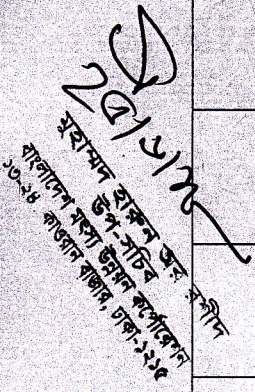 ২৩/১/১২
মুহাম্মদ হারুন অর রশীদ
উপ-সচিব
বাংলাদেশ মৎস্য উন্নয়ন কর্পোরেশন
কাওরান বাজার, ঢাকা-১২১৫